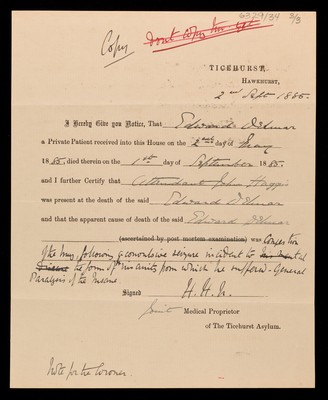 6329/34 3/3
Copy
Don't copy this yet
TICEHURST,
HAWKHURST,
2nd Septr 1885.
I Hereby Give you Notice, That Edward Delmar
a Private Patient received into this House on the 2nd day of May
1885, died therein on the 1st day of September 1885.
and I further Certify that Attendant John Haggis
was present at the death of the said Edward Delmar
and that the apparent cause of death of the said Edward Delmar
(ascertained by post mortem examination) was Congestion
of the lungs following a convulsive seizure incident to
the form of insanity from which he suffered - General
Paralysis of the Insane.
Signed H. H. N.
Joint Medical Proprietor
of The Ticehurst Asylum.
Note for the Coroner